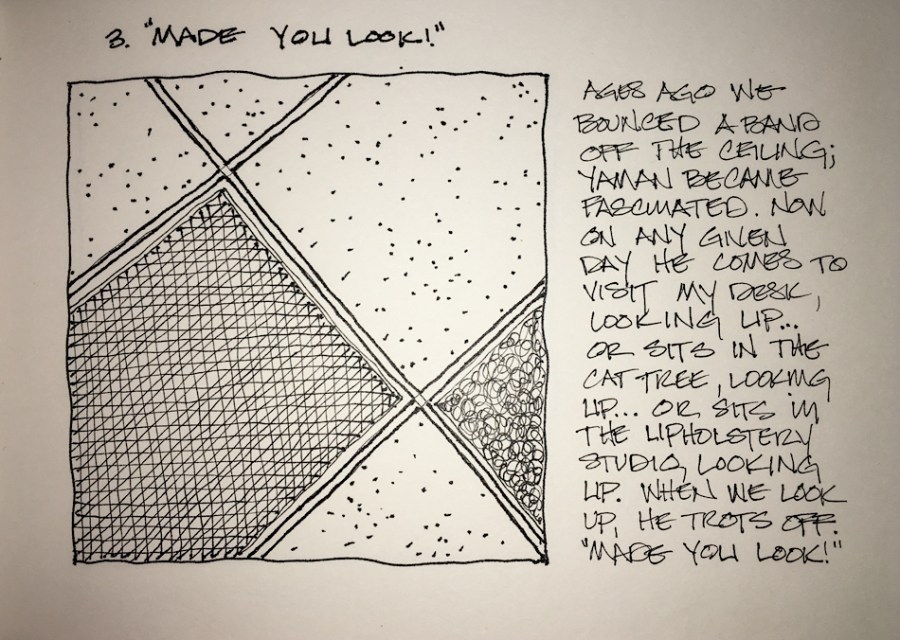 3. "MADE YOU LOOK!"
AGES AGO WE
BOUNCED A BAND
OFF THE CEILING;
YAMAN BECAME
FASCINATED. NOW
ON ANY GIVEN
DAY HE COMES TO
VISIT MY DESK,
LOOKING UP...
OR SITS IN THE
CAT TREE, LOOKING
UP... OR SITS IN
THE UPHOLSTERY
STUDIO, LOOKING
UP. WHEN WE LOOK
UP, HE TROTS OFF.
"MADE YOU LOOK!"